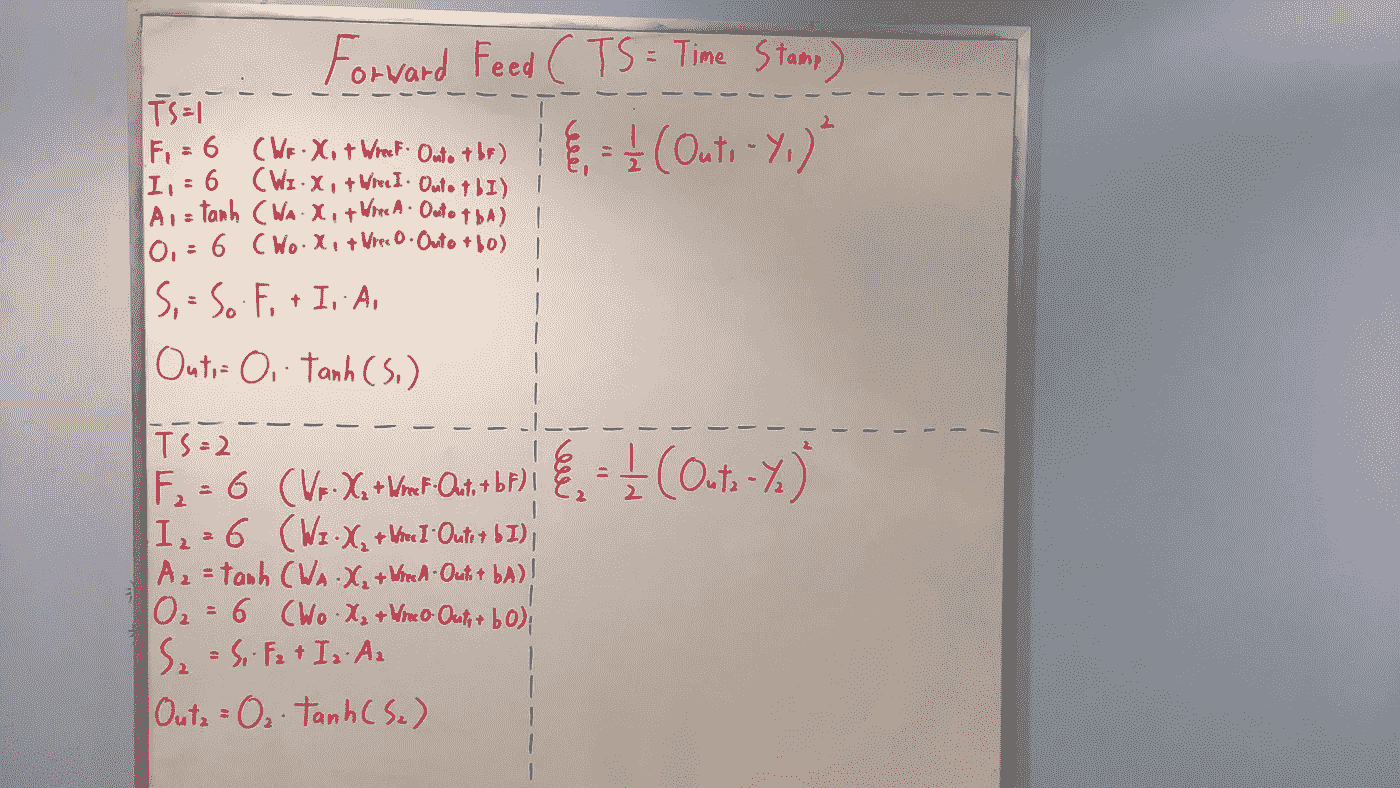 Forward Feed ( TS = Time Stamp )
TS=1
F₁ = 6 (WF · X₁ + WrecF · Out₀ + bF)
I₁ = 6 (WI · X₁ + WrecI · Out₀ + bI)
A₁ = tanh (WA · X₁ + WrecA · Out₀ + bA)
O₁ = 6 (WO · X₁ + WrecO · Out₀ + bO)
S₁ = S₀ · F₁ + I₁ · A₁
Out₁ = O₁ · tanh(S₁)
ξ₁ = 1/2 (Out₁ - Y₁)²
TS=2
F₂ = 6 (WF · X₂ + WrecF · Out₁ + bF)
I₂ = 6 (WI · X₂ + WrecI · Out₁ + bI)
A₂ = tanh (WA · X₂ + WrecA · Out₁ + bA)
O₂ = 6 (WO · X₂ + WrecO · Out₁ + bO)
S₂ = S₁ · F₂ + I₂ · A₂
Out₂ = O₂ · tanh(S₂)
ξ₂ = 1/2 (Out₂ - Y₂)²